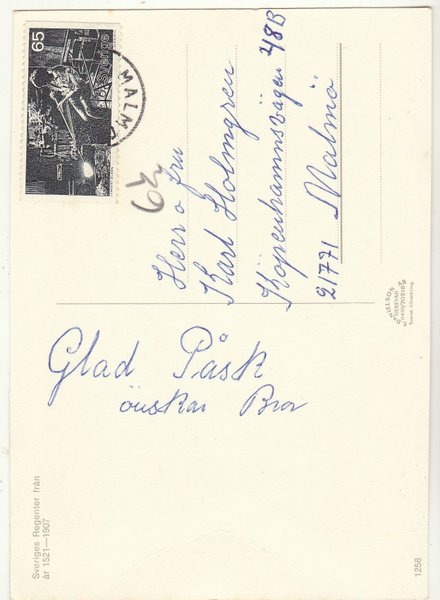 65
Sverige
MALMÖ
62
Herr o fru
Karl Holmgren
Köpenhamnsvägen 48B
21771 Malmö
Glad Påsk
önskar Bror
Sveriges Regenter från
år 1521—1907
1258